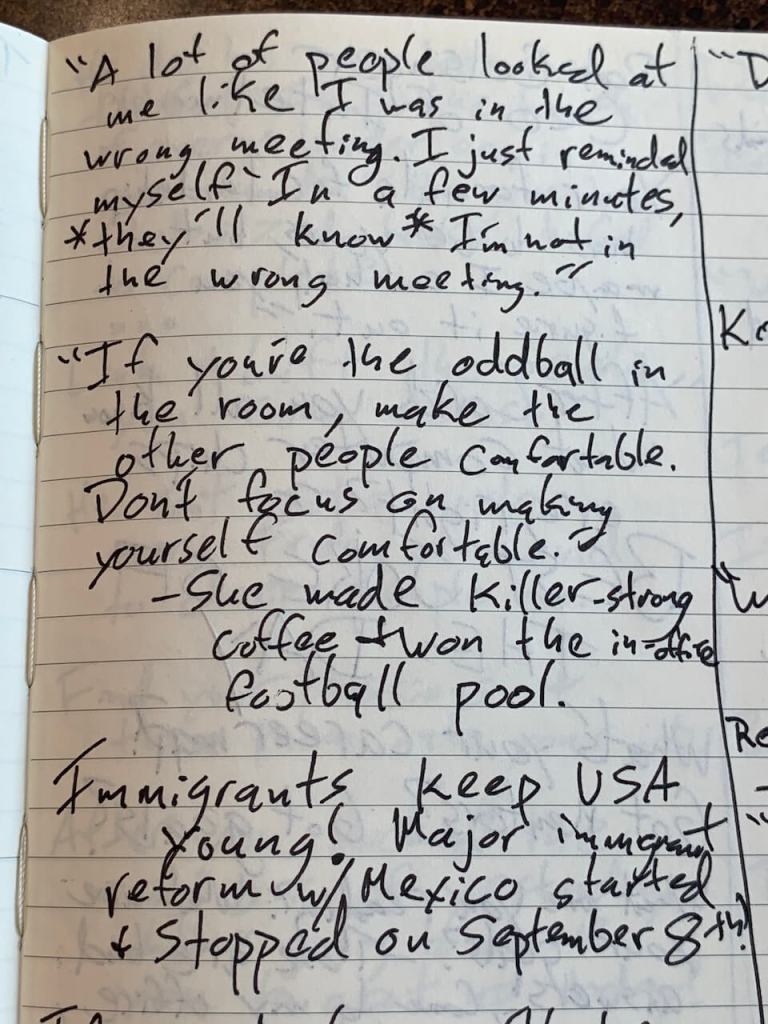 "A lot of people looked at
me like I was in the
wrong meeting. I just reminded
myself `In a few minutes,
*they'll know* I'm not in
the wrong meeting.'"
"If you're the oddball in
the room, make the
other people comfortable.
Don't focus on making
yourself comfortable."
-She made killer-strong
coffee + won the in-office
football pool.
Immigrants keep USA
young! Major immigrant
reform w/ Mexico started
+ stopped on September 8th!
"D
Ke
"W
Re